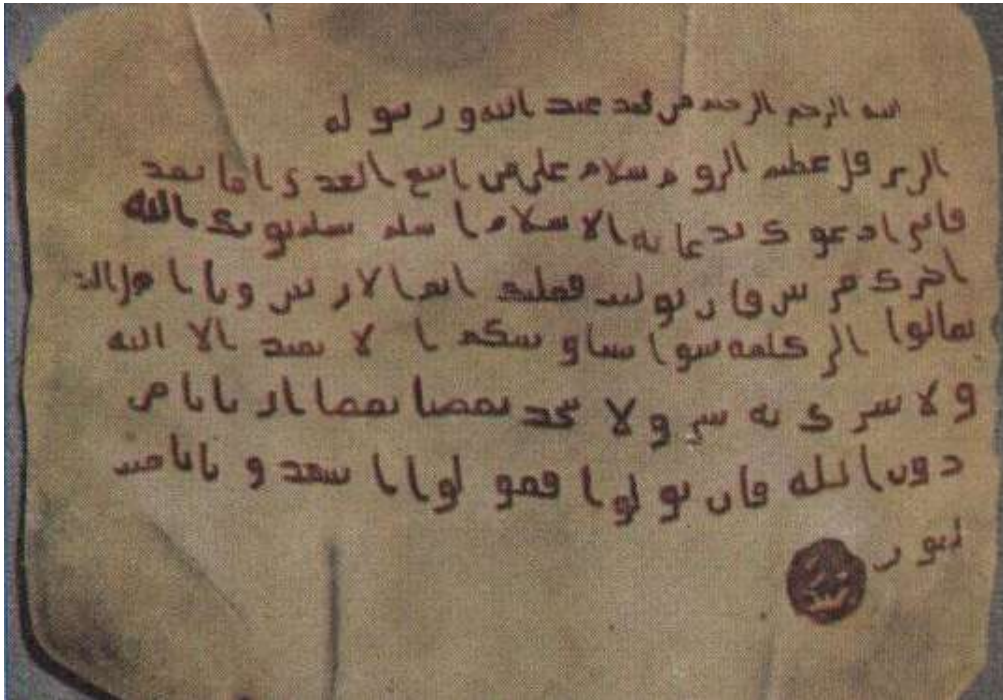 الله الرحمن الرحيم من محمد عبد الله و رسوله
الى هرقل عظيم الروم سلام على من اتبع الهدى اما بعد
فانى ادعوك بدعاية الاسلام اسلم تسلم يوتك الله
اجرك مرتين فان توليت فعليك اثم الاريسين ويا اهل
تعالوا الى كلمة سوا بيننا وبينكم الا نعبد الا الله
ولا نشرك به شيا ولا يتخذ بعضنا بعضا اربابا من
دون الله فان تولوا فقولوا اشهدوا بانا